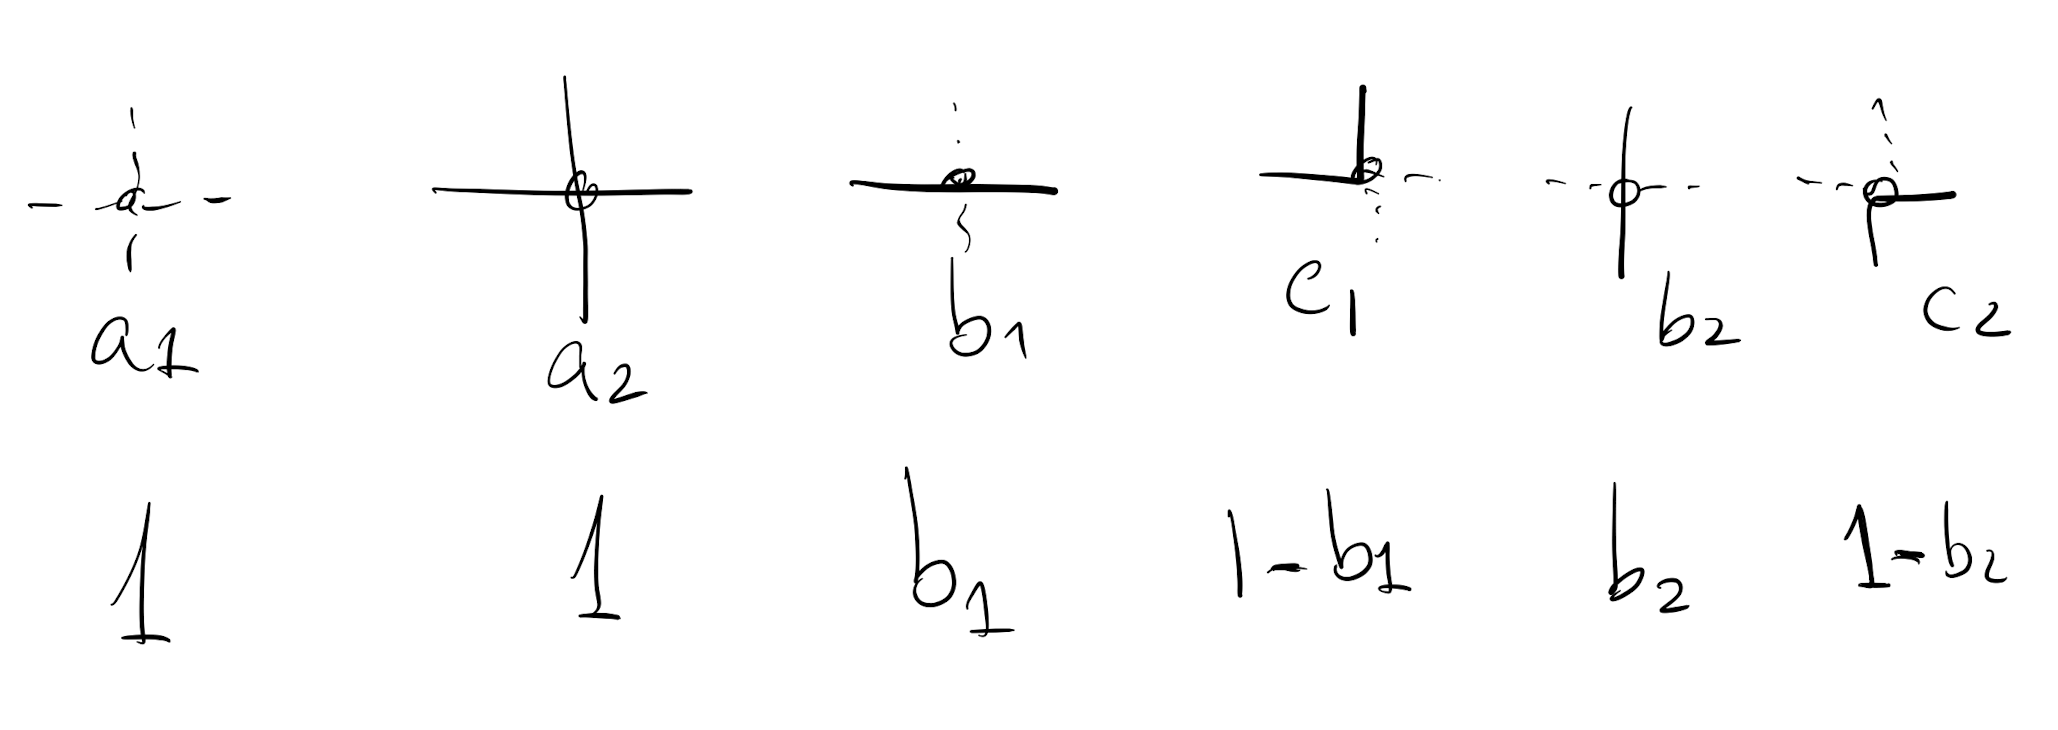 a1 a2 b1 c1 b2 c2
1 1 b1 1-b1 b2 1-b2